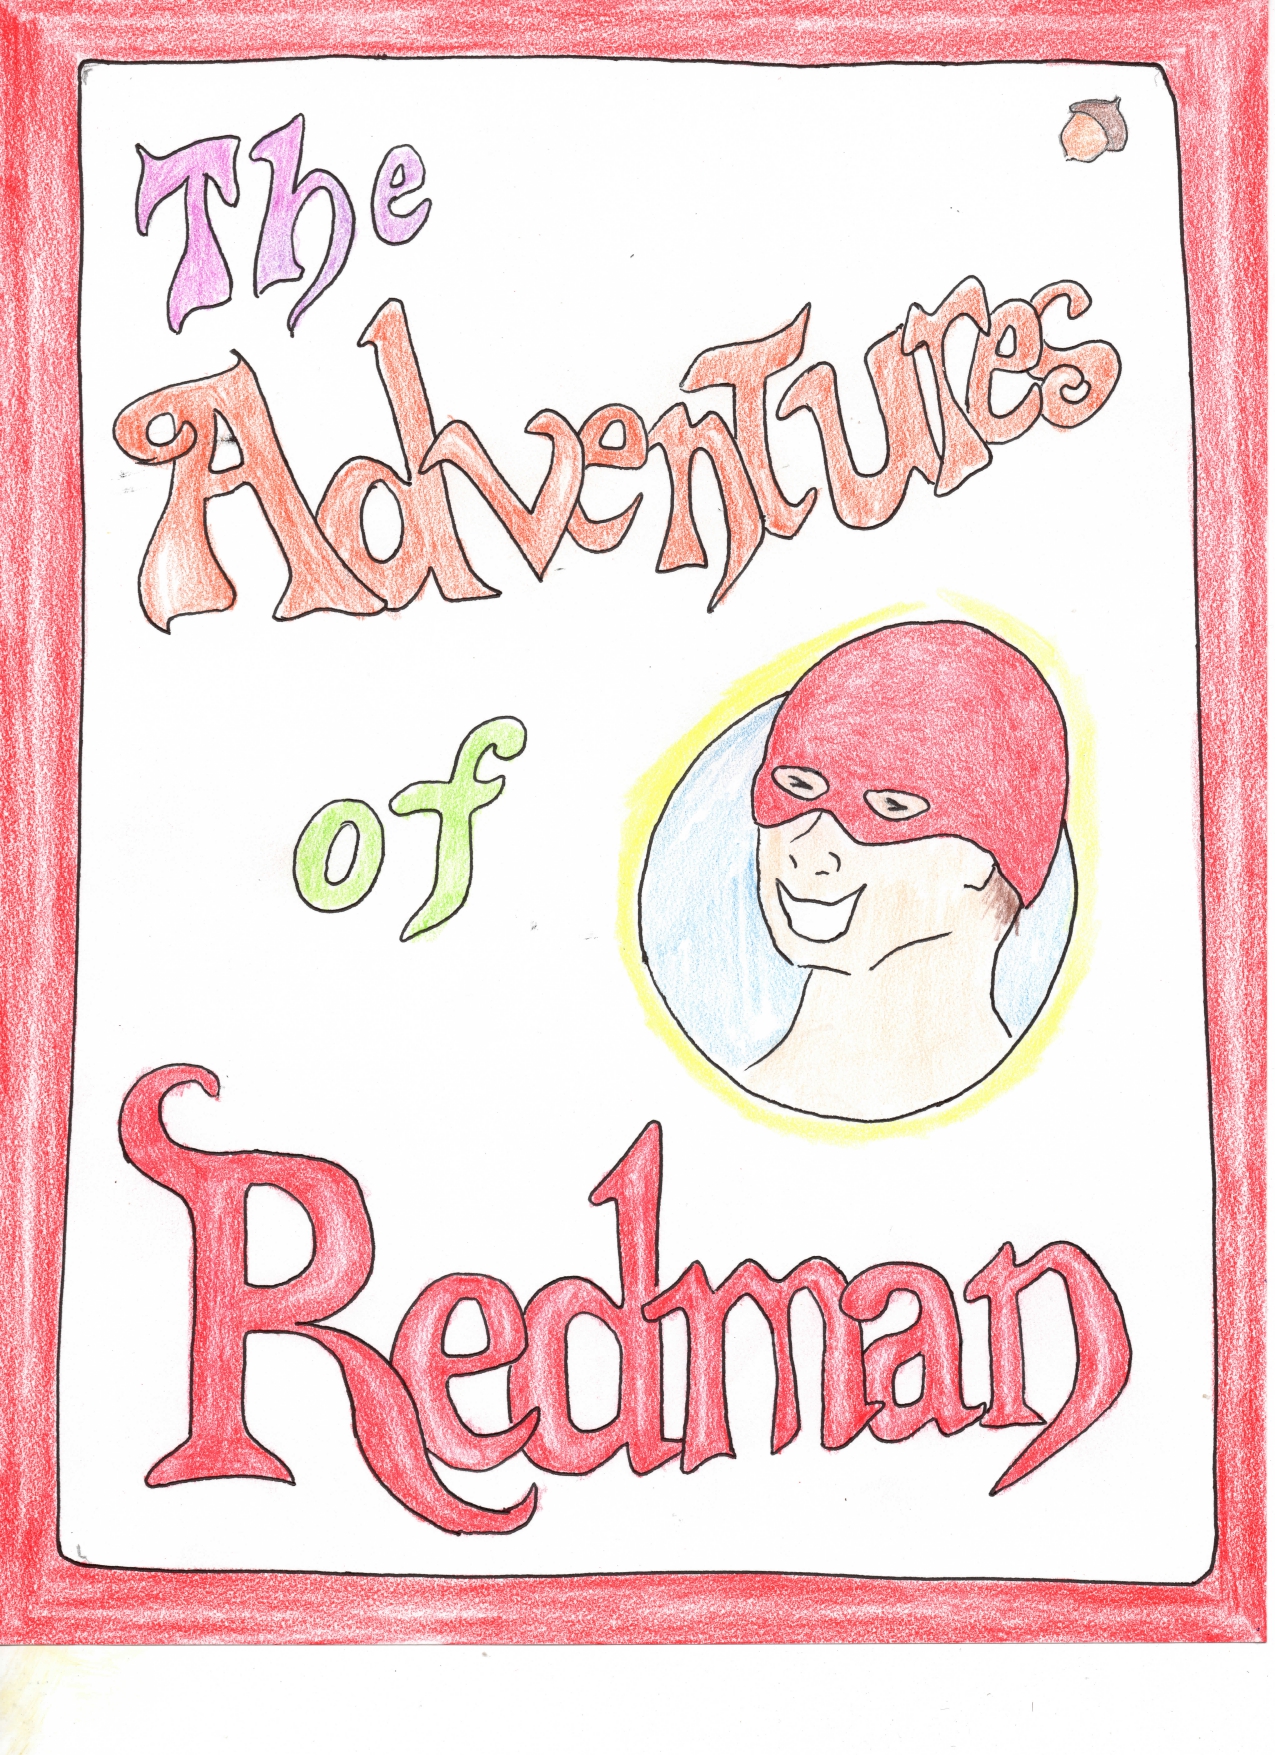 The
Adventures
of
Redman